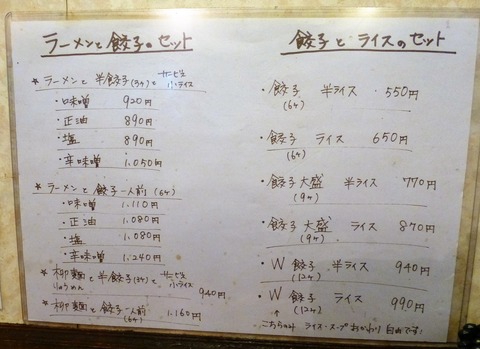 ラーメンと餃子のセット
★ラーメンと半餃子(3ヶ)と サービス小ライス
・味噌 920円
・正油 890円
・塩 890円
・辛味噌 1.050円
★ラーメンと餃子一人前(6ヶ)
・味噌 1.110円
・正油 1.080円
・塩 1.080円
・辛味噌 1.240円
★柳麺と半餃子(3ケ)と サービス小ライス
りゅうめん 940円
★柳麺と餃子一人前 1.160円
(6ケ)
餃子とライスのセット
・餃子 半ライス 550円
(6ケ)
・餃子 ライス 650円
(6ケ)
・餃子大盛 半ライス 770円
(9ヶ)
・餃子大盛 ライス 870円
(9ヶ)
・W餃子 半ライス 940円
(12ヶ)
・W餃子 ライス 990円
↑(12ヶ)
こちらのみ ライス・スープおかわり自由です!